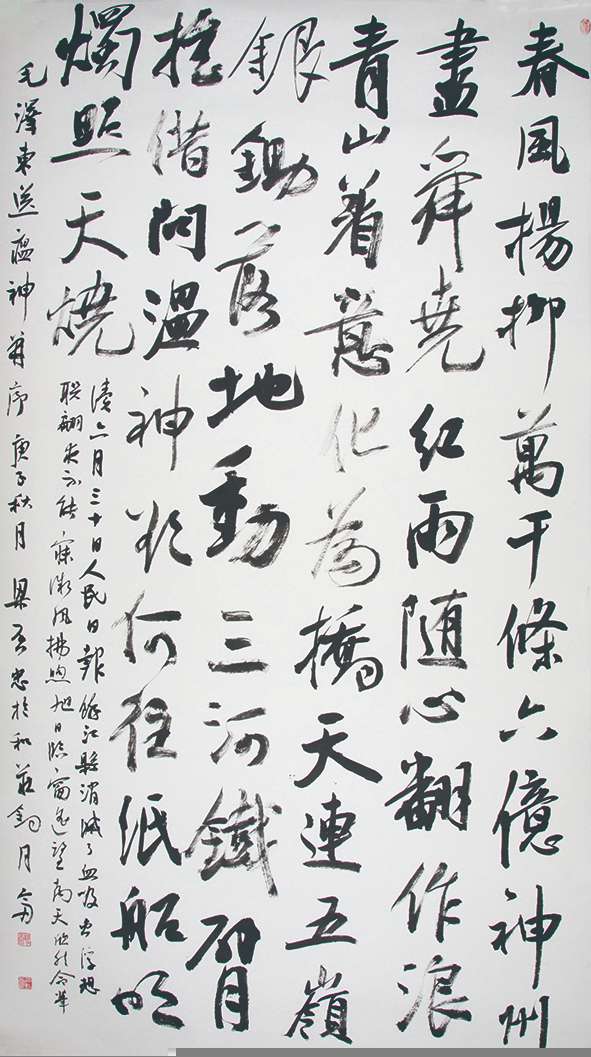 春風楊柳萬千條六億神州
盡舜堯紅雨随心翻作浪
青山着意化為橋天連五嶺
銀鋤落地動三河鐵臂
搖借問溫神欲何往紙船明
燭照天燒
读六月三十日人民日報餘江縣消滅了血吸虫浮想
联翩夜不能寐微風拂煦旭日臨窗遙望南天欣然命筆
毛澤東送瘟神並序庚子秋月梁忠於和莊月